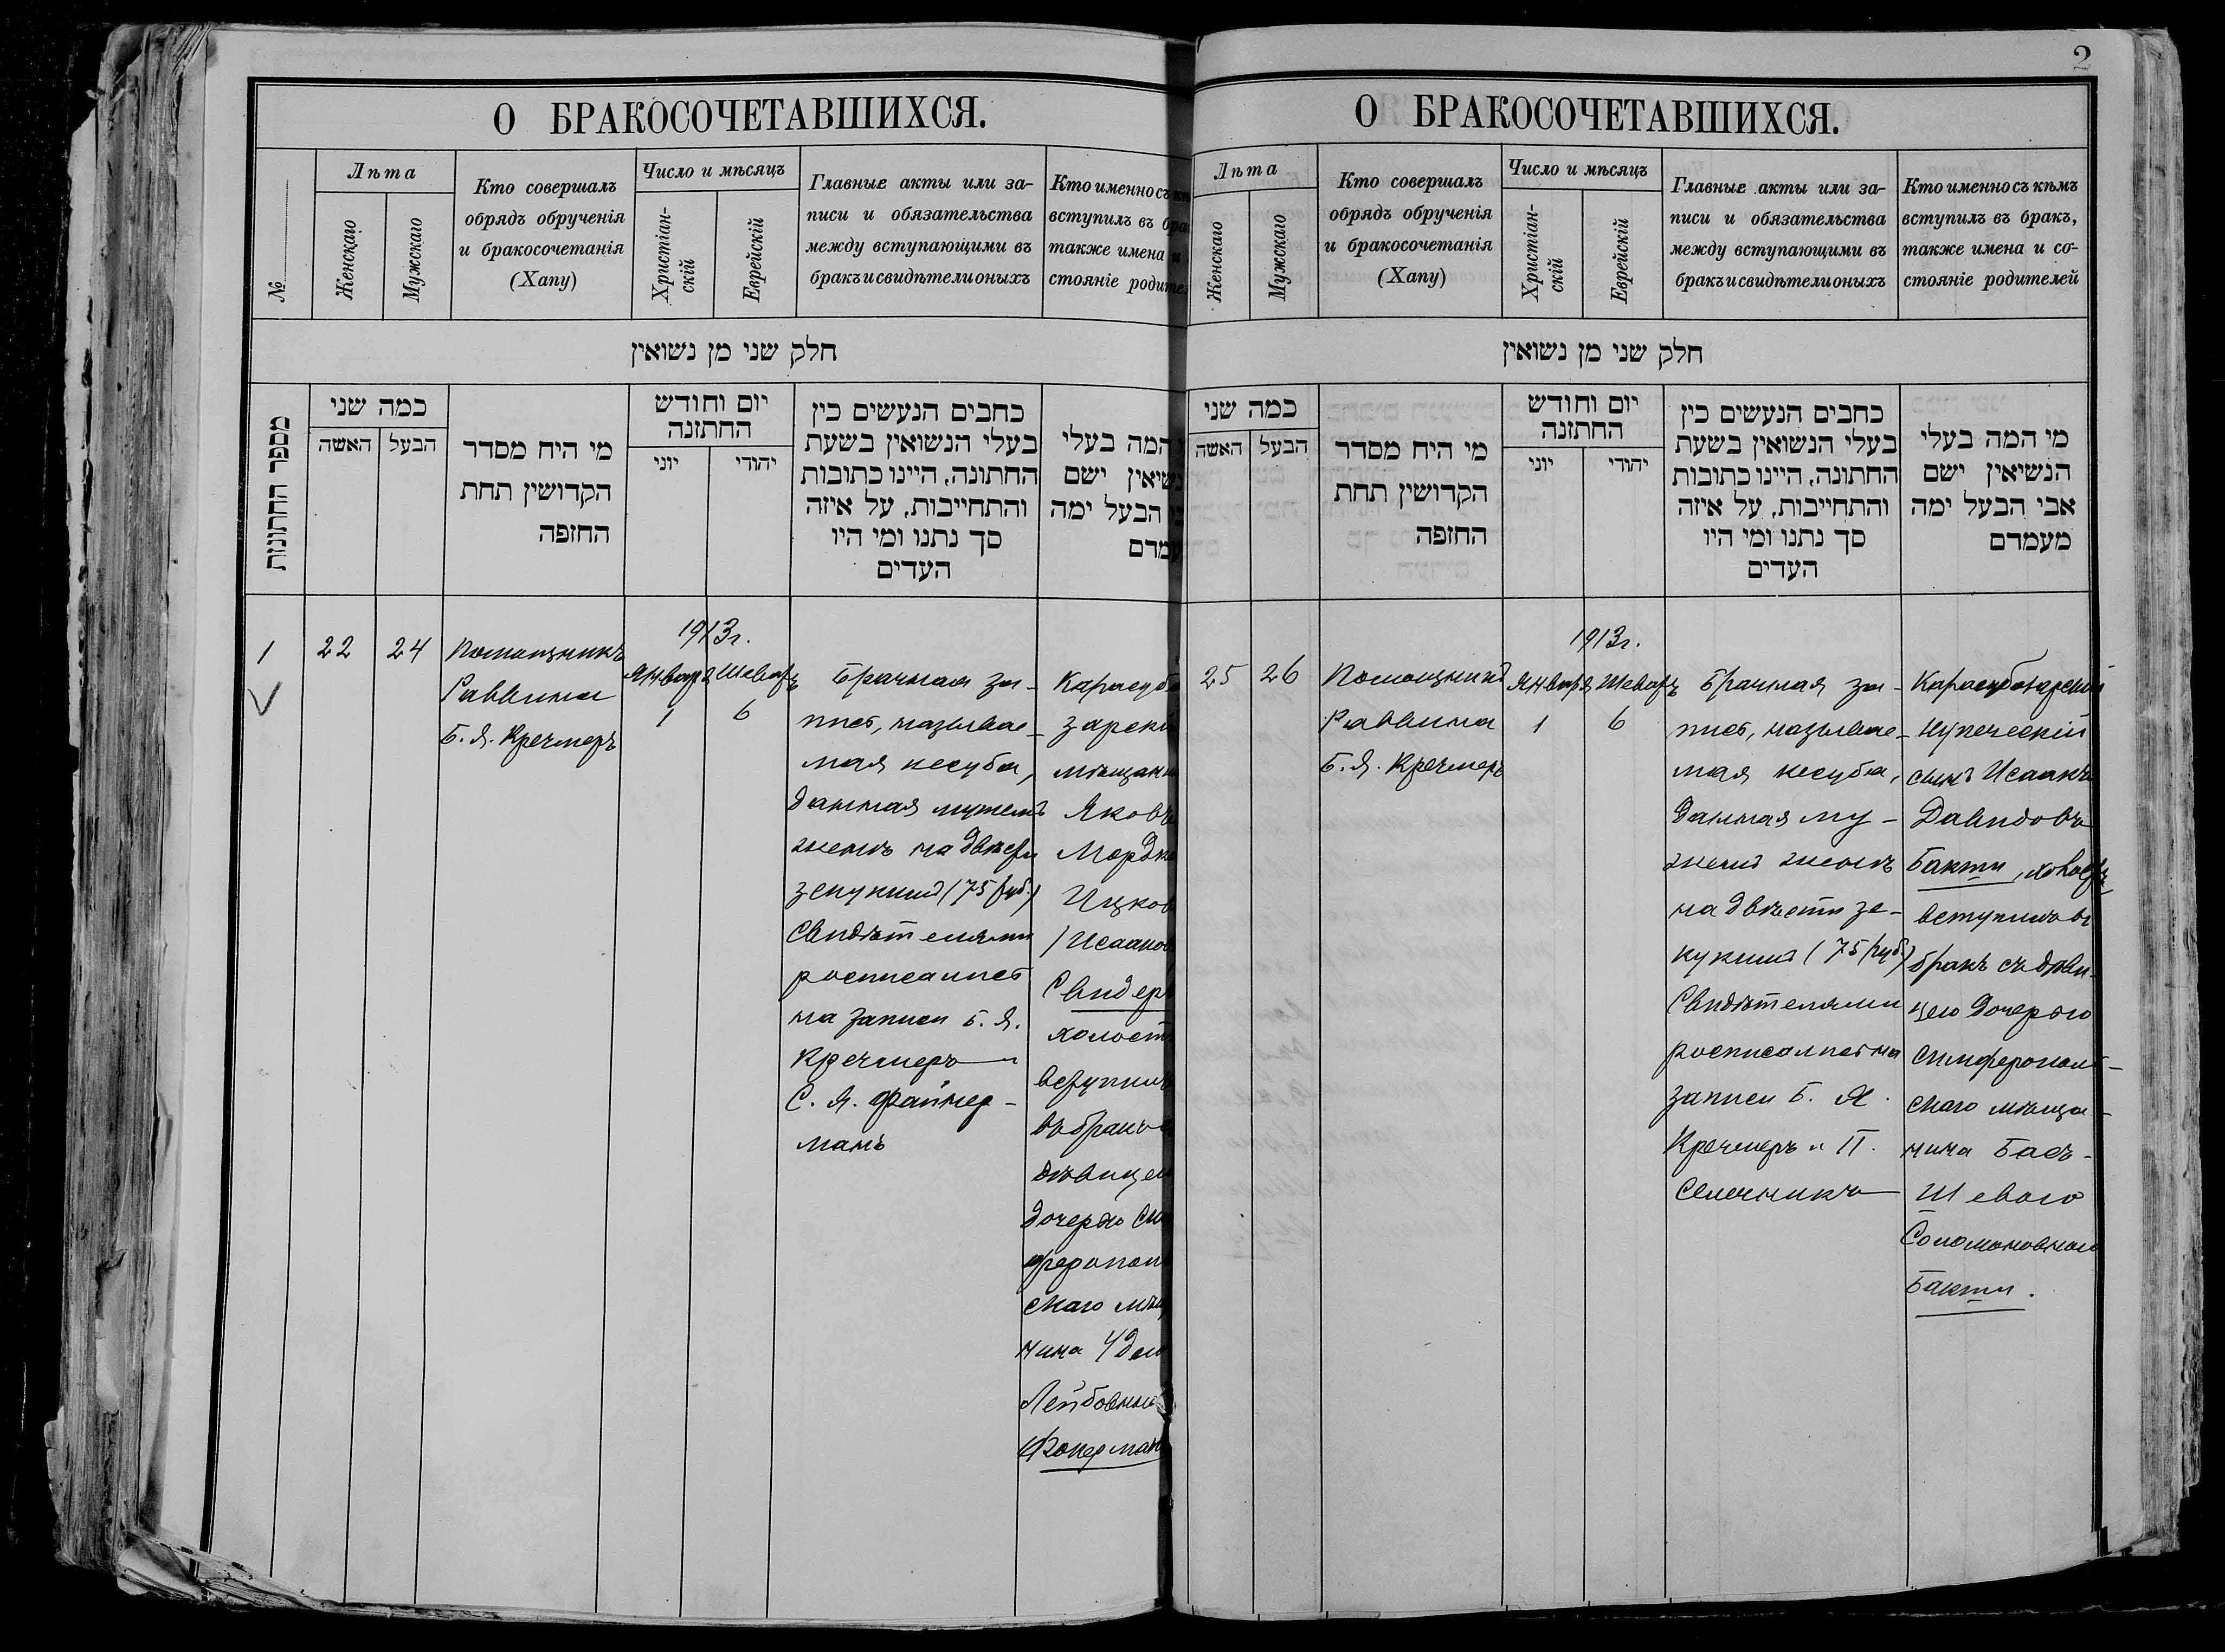 О БРАКОСОЧЕТАВШИХСЯ.
№
Лѣта
Женскаго
Мужскаго
Кто совершалъ
обрядъ обрученія
и бракосочетанія
(Хапу)
Число и мѣсяцъ
Христіан-
скій
Еврейскій
Главные акты или за-
писи и обязательства
между вступающими въ
бракъ и свидѣтели оныхъ
Кто именно съ
вступилъ въ
также имена
стояніе
חלק שני מן נשואין
מספר החתונות
כמה שני
האשה
הבעל
מי היח מסדר
הקדושין תחת
החזפה
יום וחודש
החתזנה
יוני
יהודי
כחבים הנעשים כין
בעלי הנשואין בשעת
החתונה, היינו כתובות
והתחייבות, על איזה
סך נתנו ומי היו
העדים
המה בעלי
ישם
הבעל ימה
1
22
24
Помощникъ
Раввина
Б. Я. Кречмеръ
1913 г.
Январь
1
Шеватъ
6
Брачная за-
пись, называе-
мая кесуба,
данная мужемъ
женѣ на двѣсти
зекукимъ (75 руб.)
Свидѣтелями
росписались
на записи Б. Я.
Кречмеръ и
С. Я. Файнер-
манъ
Яковъ
въ бракъ
дочерью
скаго
нина
2
О БРАКОСОЧЕТАВШИХСЯ.
Лѣта
Женскаго
Мужскаго
Кто совершалъ
обрядъ обрученія
и бракосочетанія
(Хапу)
Число и мѣсяцъ
Христіан-
скій
Еврейскій
Главные акты или за-
писи и обязательства
между вступающими въ
бракъ и свидѣтели оныхъ
Кто именно съ кѣмъ
вступилъ въ бракъ,
также имена и со-
стояніе родителей
חלק שני מן נשואין
כמה שני
האשה
הבעל
מי היח מסדר
הקדושין תחת
החזפה
יום וחודש
החתזנה
יוני
יהודי
כחבים הנעשים כין
בעלי הנשואין בשעת
החתונה, היינו כתובות
והתחייבות, על איזה
סך נתנו ומי היו
העדים
מי המה בעלי
הנשיאין ישם
אבי הבעל ימה
מעמדם
25
26
Помощникъ
Раввина
Б. Я. Кречмеръ
1913 г.
Январь
1
Шеватъ
6
Брачная за-
пись, называе-
мая кесуба,
данная му-
жемъ женѣ
на двѣсти зе-
кукимъ (75 руб.)
Свидѣтелями
росписались на
записи Б. Я.
Кречмеръ и П.
Карасубазарскій
купеческій
сынъ Исаакъ
Давидовъ
Бакши, холостъ,
вступилъ въ
бракъ съ дѣви-
цею дочерью
симферополь-
скаго мѣща-
нина Басъ-
Шевою
Соломоновною
Бакши.